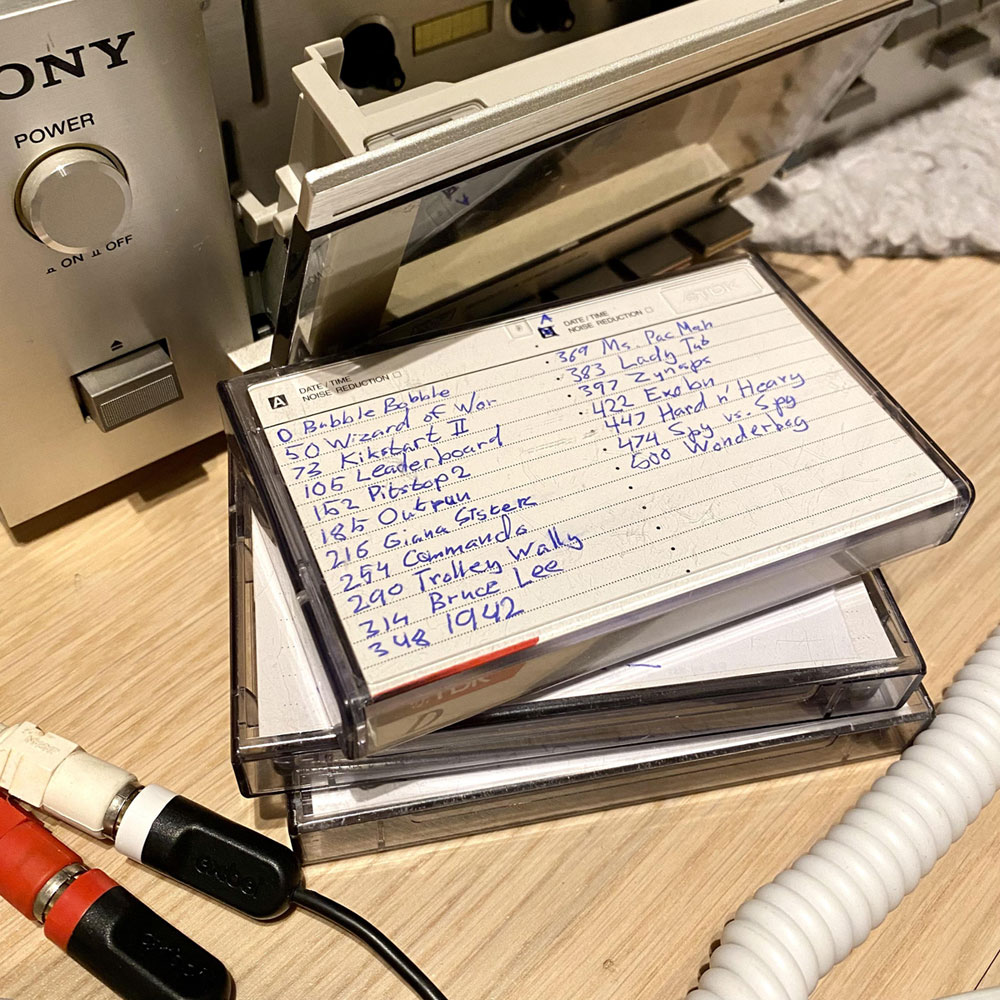 ONY
POWER
ON OFF
A DATE/TIME
NOISE REDUCTION
0 Bubble Bobble
50 Wizard of Wor
73 Kikstart II
105 Leaderboard
152 Pitstop 2
185 Outrun
216 Giana Sisters
254 Commando
290 Trolley Wally
314 Bruce Lee
348 1942
A
DATE/TIME
NOISE REDUCTION
TDK
369 Ms. Pac Man
383 Lady Tut
397 Zynaps
422 Exolon
447 Hard n' Heavy
474 Spy vs. Spy
500 Wonderboy
TDK
D